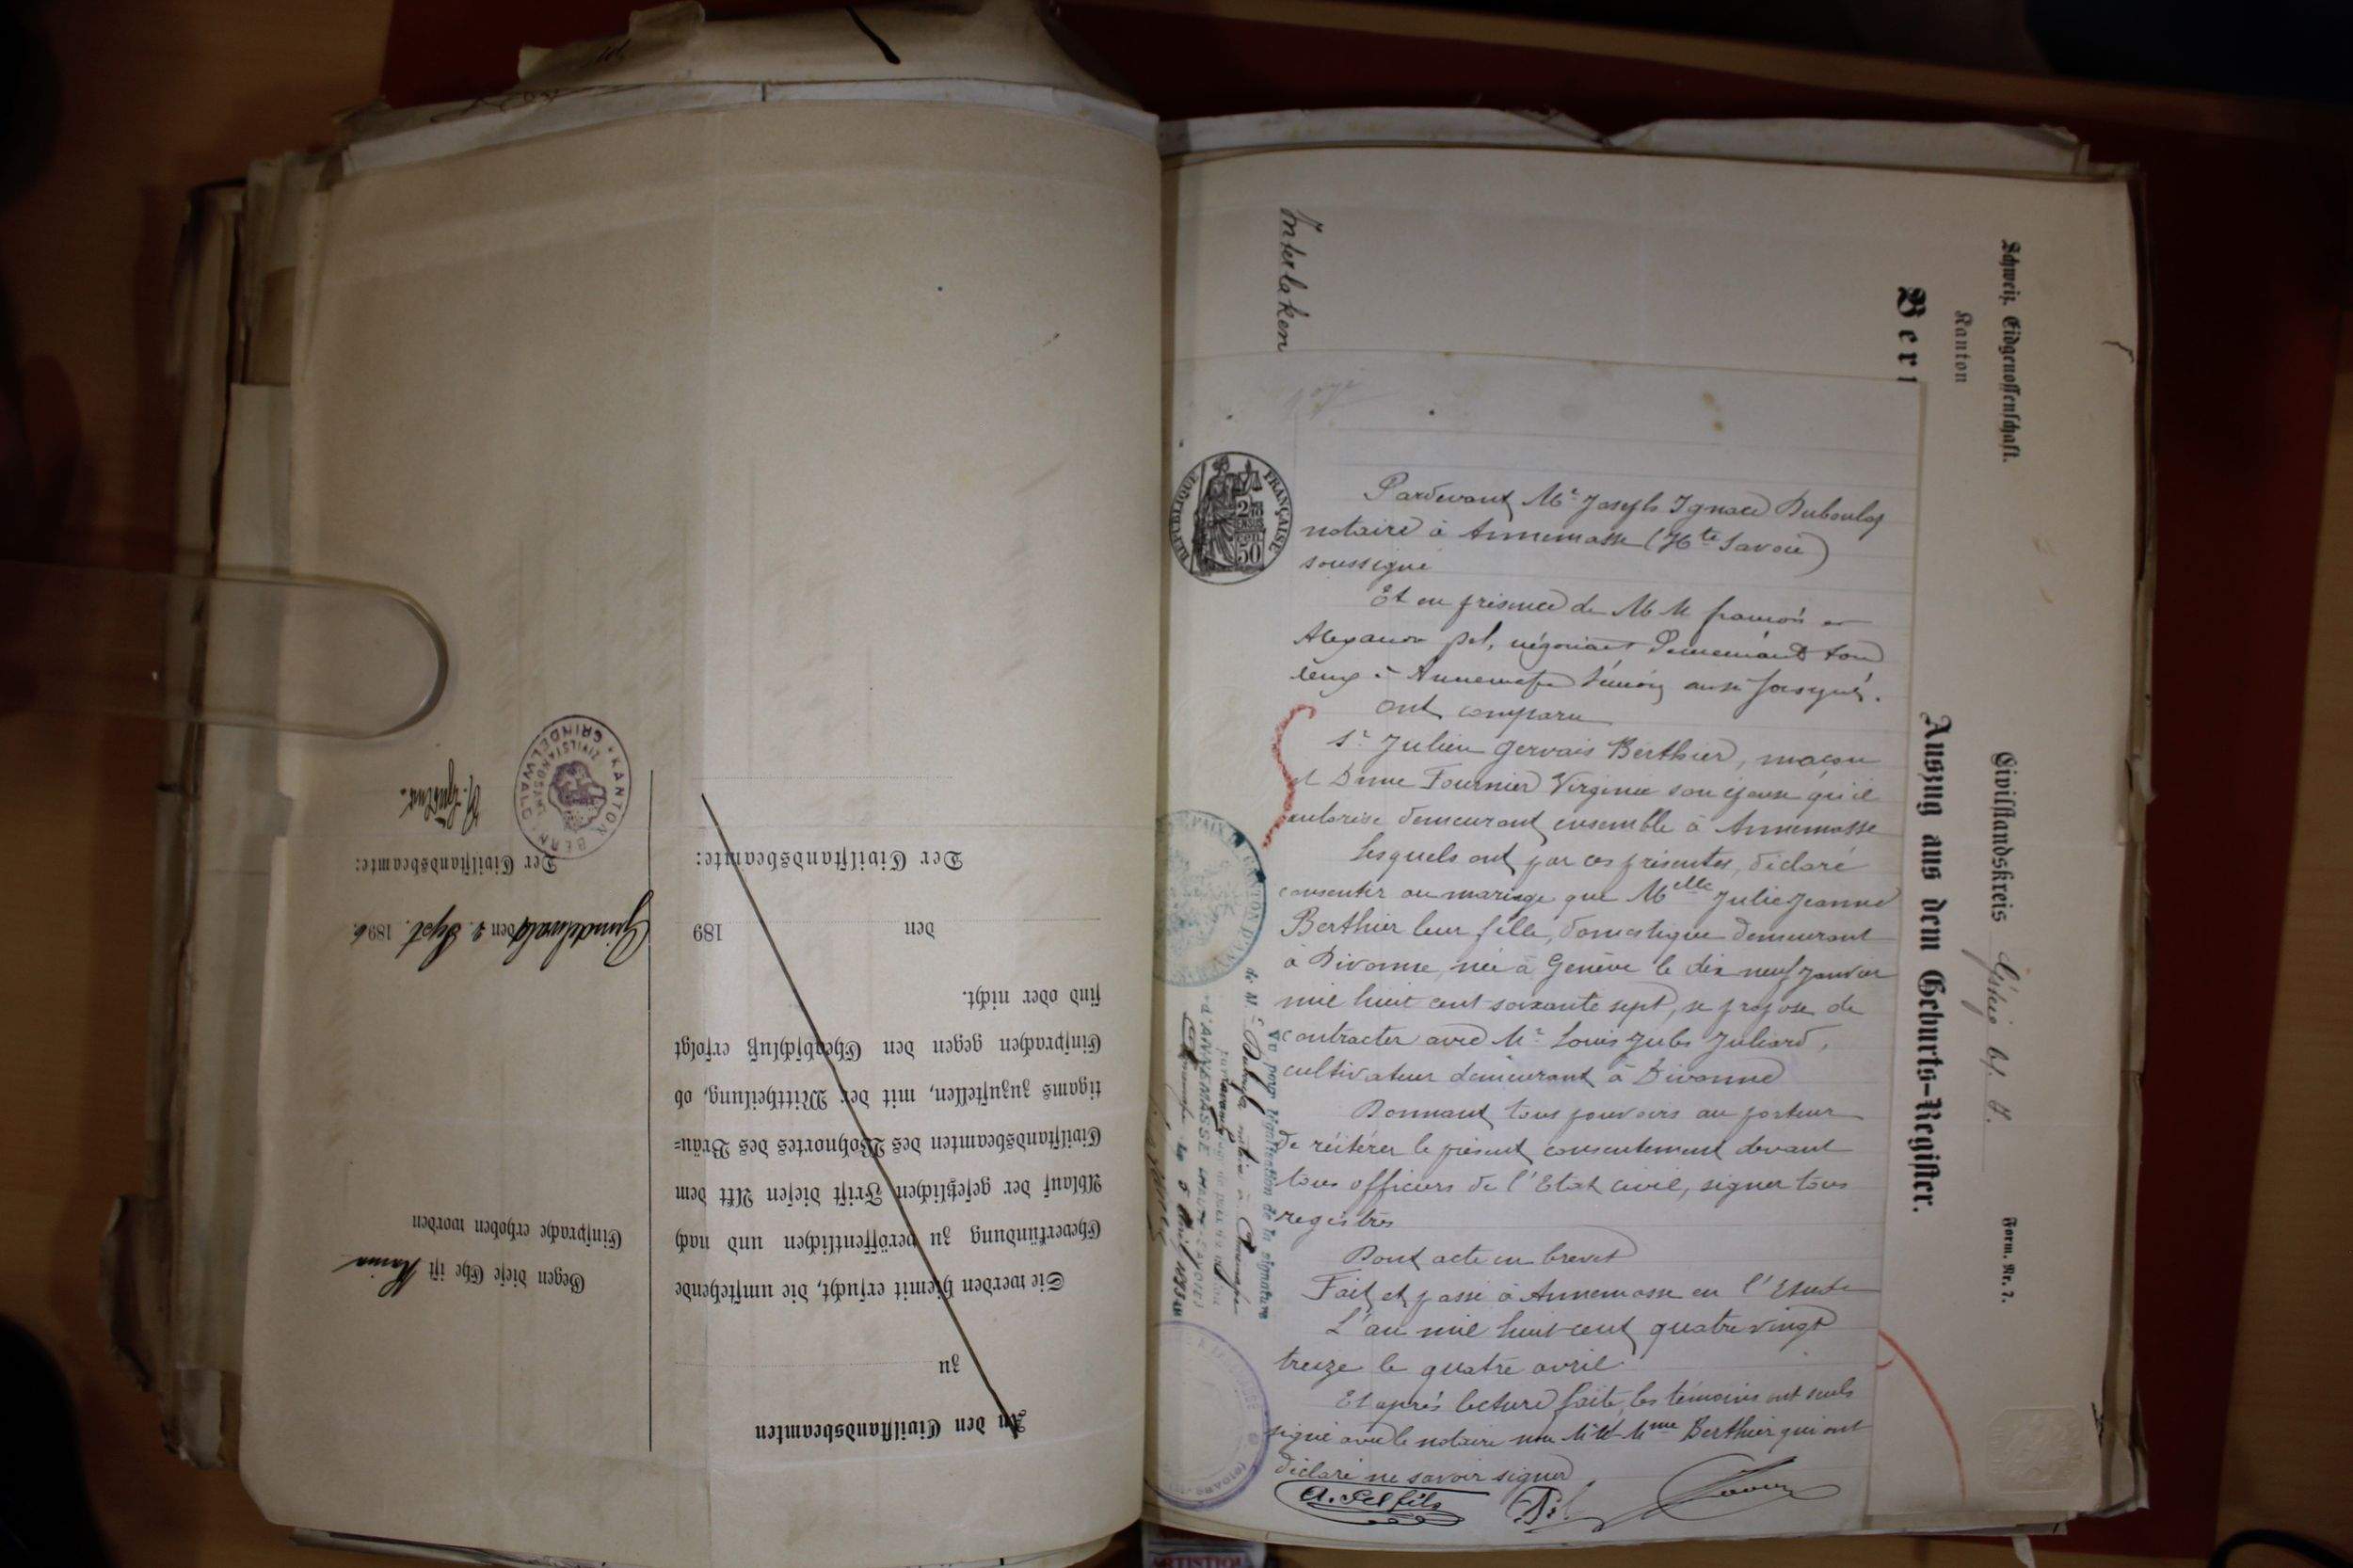 An den Civilstandsbeamten
zu
Sie werden hiemit ersucht, die umstehende
Eheverkündung zu veröffentlichen und nach
Ablauf der gesetzlichen Frist diesen Akt dem
Civilstandsbeamten des Wohnortes des Bräu-
tigams zuzustellen, mit der Mittheilung, ob
Einsprachen gegen den Eheabschluß erfolgt
sind oder nicht.
den 189
Der Civilstandsbeamte:
Gegen diese Ehe ist Keine
Einsprache erhoben worden
Grindelwald den 2. Sept. 1896.
Der Civilstandsbeamte:
KANTON BERN
ZIVILSTANDSAMT
GRINDELWALD
Schweiz. Eidgenossenschaft.
Kanton
Bern
Civilstandskreis Gsteig b/. I.
Form. Nr. 7.
Auszug aus dem Geburts-Register.
Interlaken
RÉPUBLIQUE FRANÇAISE
50
Pardevant Me. Joseph Ignace Duboulog
notaire à Annemasse (Hte Savoie)
soussigné
Et en présence de MM françois et
Alexandre Pel, négociant demeurant tous
deux à Annemasse témoins aussi soussignés.
Ont comparu
Sr. Julien Gervais Berthier, maçon
et Dme Fournier Virginie son épouse qu'il
autorise demeurant ensemble à Annemasse
Lesquels ont par ces présentes, déclaré
consentir au mariage que Melle Julie Jeanne
Berthier leur fille, domestique demeurant
à Divonne, née à Genève le dix neuf janvier
mil huit cent soixante sept, se propose de
contracter avec Mr. Louis Jules Juliard,
cultivateur demeurant à Divonne
Donnant tous pouvoirs au porteur
de réitérer le présent consentement devant
tous officiers de l'Etat civil, signer tous
registres
Dont acte en brevet
Fait et passé à Annemasse en l'Etude
L'an mil huit cent quatre vingt
treize le quatre avril.
Et après lecture faite, les témoins ont seuls
signé avec le notaire non Mr et Mme Berthier qui ont
déclaré ne savoir signer
A. Pel fils
F. Pel
Vu pour légalisation de la signature
de Me notaire à Annemasse
d'ANNEMASSE (HAUTE-SAVOIE)
ARTISTIQU